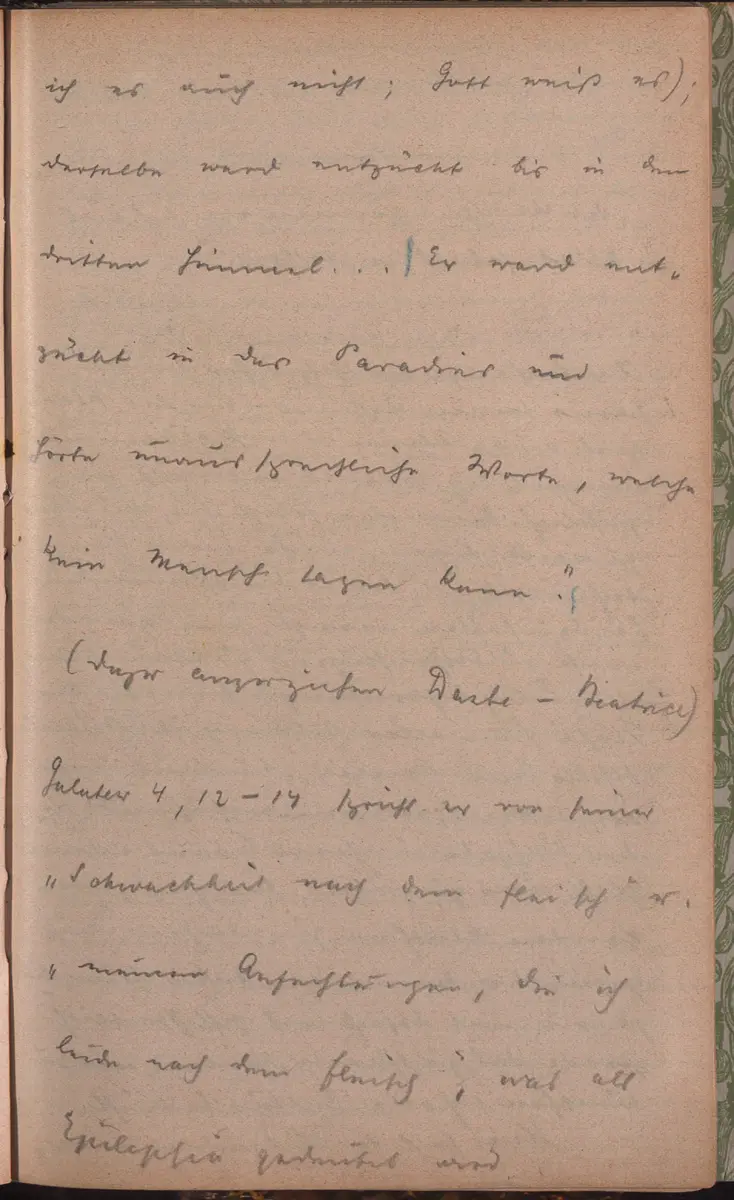 ich es auch nicht; Gott weiß es);
derselbe ward entzückt bis in den
dritten Himmel... | Er ward ent-
zückt in das Paradies und
hörte unaussprechliche Worte, welche
kein Mensch sagen kann."
(dazu Dante - Beatrice)
Galater 4, 12-14 spricht er von seiner
„Schwachheit nach dem Fleisch" u.
„meinen Anfechtungen, die ich
leide nach dem Fleisch", was als
Epilepsie gedeutet wird